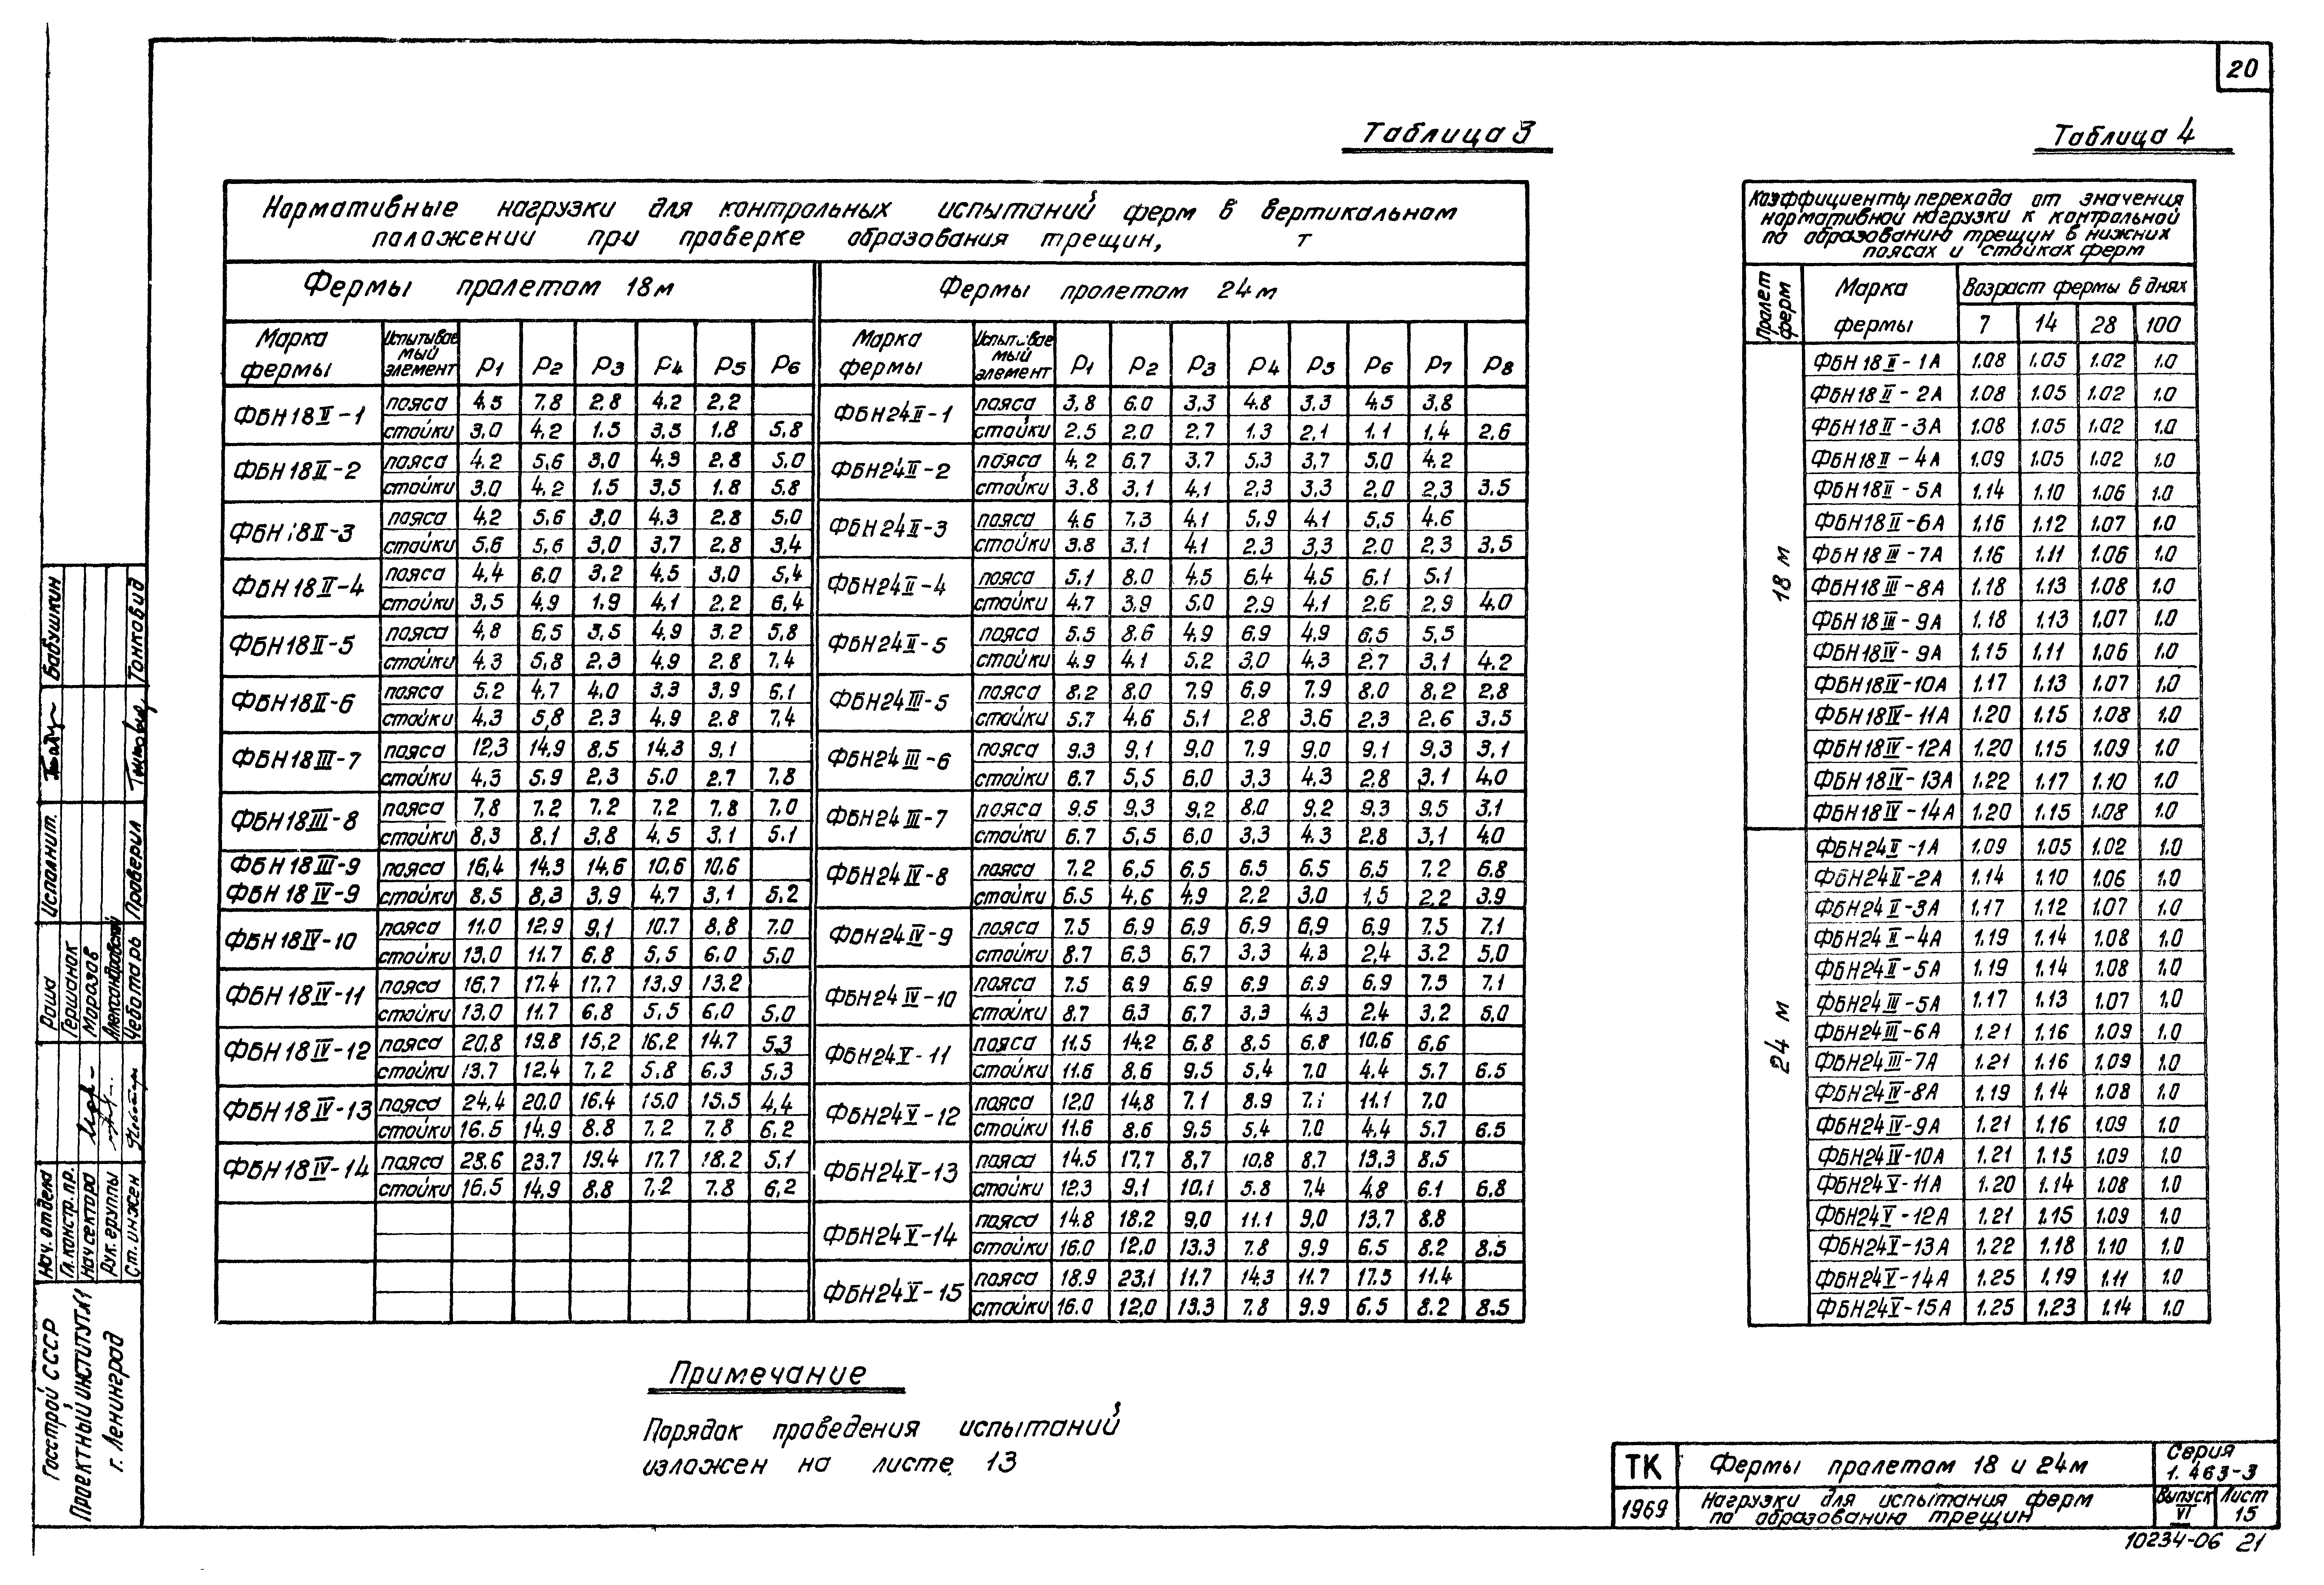 20
Таблица 3
Нормативные нагрузки для контрольных испытаний ферм в вертикальном
положении при проверке образования трещин, т
Фермы пролетом 18м
Фермы пролетом 24м
Марка фермы Испытываемый элемент P1 P2 P3 P4 P5 P6
ФБН18II-1 пояса 4,5 7,8 2,8 4,2 2,2
стойки 3,0 4,2 1,5 3,5 1,8 5,8
ФБН18II-2 пояса 4,2 5,6 3,0 4,3 2,8 5,0
стойки 3,0 4,2 1,5 3,5 1.8 5,8
ФБН18II-3 пояса 4,2 5,6 3,0 4,3 2,8 5,0
стойки 5,6 5,6 3,0 3,7 2,8 3,4
ФБН18II-4 пояса 4,4 6,0 3,2 4,5 3,0 5,4
стойки 3,5 4,9 1,9 4,1 2,2 6,4
ФБН18II-5 пояса 4,8 6,5 3,5 4,9 3,2 5,8
стойки 4,3 5,8 2,3 4,9 2,8 7,4
ФБН18II-6 пояса 5,2 4,7 4,0 3,3 3,9 6,1
стойки 4,3 5,8 2,3 4,9 2,8 7,4
ФБН18III-7 пояса 12,3 14,9 8,5 14,3 9,1
стойки 4,3 5,9 2,3 5,0 2,7 7,8
ФБН18III-8 пояса 7,8 7,2 7,2 7,2 7,8 7,0
стойки 8,3 8,1 3,8 4,5 3,1 5,1
ФБН18III-9 пояса 16,4 14,3 14,6 10,6 10,6
ФБН18IV-9 стойки 8,5 8,3 3,9 4,7 3,1 5,2
ФБН18IV-10 пояса 11,0 12,9 9,1 10,7 8,8 7,0
стойки 13,0 11,7 6,8 5,5 6,0 5,0
ФБН18IV-11 пояса 16,7 17,4 17,7 13,9 13,2
стойки 13,0 11,7 6,8 5,5 6,0 5,0
ФБН18IV-12 пояса 20,8 19,8 15,2 16,2 14,7 5,3
стойки 13,7 12,4 7,2 5,8 6,3 5,3
ФБН18IV-13 пояса 24,4 20,0 16,4 15,0 15,5 4,4
стойки 16.5 14,9 8.8 7,2 7,8 6,2
ФБН18IV-14 пояса 28,6 23,7 19,4 17,7 18,2 5,1
стойки 16,5 14,9 8,8 7,2 7,8 6,2
Марка фермы Испытываемый элемент P1 P2 P3 P4 P5 P6 P7 P8
ФБН24II-1 пояса 3,8 6,0 3,3 4,8 3,3 4,5 3,8
стойки 2,5 2,0 2,7 1,3 2,1 1,1 1,4 2,6
ФБН24II-2 пояса 4,2 6,7 3,7 5,3 3,7 5,0 4,2
стойки 3,8 3,1 4,1 2,3 3,3 2,0 2,3 3,5
ФБН24II-3 пояса 4,6 7,3 4,1 5,9 4,1 5,5 4,6
стойки 3,8 3,1 4,1 2,3 3,3 2,0 2,3 3,5
ФБН24II-4 пояса 5,1 8,0 4,5 6,4 4,5 6,1 5,1
стойки 4,7 3,9 5,0 2,9 4,1 2,6 2,9 4,0
ФБН24II-5 пояса 5,5 8,6 4,9 6,9 4,9 6,5 5,5
стойки 4,9 4,1 5,2 3,0 4,3 2,7 3,1 4,2
ФБН24III-5 пояса 8,2 8,0 7,9 6,9 7,9 8,0 8,2 2,8
стойки 5,7 4,6 5,1 2,8 3,6 2,3 2,6 3,5
ФБН24III-6 пояса 9,3 9,1 9,0 7,9 9,0 9,1 9,3 3,1
стойки 6,7 5,5 6,0 3,3 4,3 2,8 3,1 4,0
ФБН24III-7 пояса 9,5 9,3 9,2 8,0 9,2 9,3 9,5 3,1
стойки 6,7 5,5 6,0 3,3 4,3 2,8 3,1 4,0
ФБН24IV-8 пояса 7,2 6,5 6,5 6,5 6,5 6,5 7,2 6,8
стойки 6,5 4,6 4,9 2,2 3,0 1,5 2,2 3,9
ФБН24IV-9 пояса 7,5 6,9 6,9 6,9 6,9 6,9 7,5 7,1
стойки 8,7 6,3 6,7 3,3 4,3 2,4 3,2 5,0
ФБН24IV-10 пояса 7,5 6,9 6,9 6,9 6,9 6,9 7,5 7,1
стойки 8,7 6,3 6,7 3,3 4,3 2,4 3,2 5,0
ФБН24V-11 пояса 11,5 14,2 6,8 8,5 6,8 10,6 6,6
стойки 11,6 8,6 9,5 5,4 7,0 4,4 5,7 6,5
ФБН24V-12 пояса 12,0 14,8 7,1 8,9 7,1 11,1 7,0
стойки 11,6 8,6 9,5 5,4 7,0 4,4 5,7 6,5
ФБН24V-13 пояса 14,5 17,7 8,7 10,8 8,7 13,3 8,5
стойки 12,3 9,1 10,1 5,8 7,4 4,8 6,1 6,8
ФБН24V-14 пояса 14,8 18,2 9,0 11,1 9,0 13,7 8,8
стойки 16,0 12,0 13,3 7,8 9,9 6,5 8,2 8,5
ФБН24V-15 пояса 18,9 23,1 11,7 14,3 11,7 17,5 11,4
стойки 16,0 12,0 13,3 7,8 9,9 6,5 8,2 8,5
Таблица 4
Коэффициенты перехода от значения
нормативной нагрузки к контрольной
по образованию трещин в нижних
поясах и стойках ферм
Пролет ферм Марка фермы Возраст фермы в днях
7 14 28 100
18 м
ФБН18II-1А 1.08 1.05 1.02 1.0
ФБН18II-2А 1.08 1.05 1.02 1.0
ФБН18II-3А 1.08 1.05 1.02 1.0
ФБН18II-4А 1.09 1.05 1.02 1.0
ФБН18II-5А 1.14 1.10 1.06 1.0
ФБН18II-6А 1.16 1.12 1.07 1.0
ФБН18III-7А 1.16 1.11 1.06 1.0
ФБН18III-8А 1.18 1.13 1.08 1.0
ФБН18III-9А 1.18 1.13 1.07 1.0
ФБН18IV-9А 1.15 1.11 1.06 1.0
ФБН18IV-10А 1.17 1.13 1.07 1.0
ФБН18IV-11А 1.20 1.15 1.08 1.0
ФБН18IV-12А 1.20 1.15 1.09 1.0
ФБН18IV-13А 1.22 1.17 1.10 1.0
ФБН18IV-14А 1.20 1.15 1.08 1.0
24 м
ФБН24II-1А 1.09 1.05 1.02 1.0
ФБН24II-2А 1.14 1.10 1.06 1.0
ФБН24II-3А 1.17 1.12 1.07 1.0
ФБН24II-4А 1.19 1.14 1.08 1.0
ФБН24II-5А 1.19 1.14 1.08 1.0
ФБН24III-5А 1.17 1.13 1.07 1.0
ФБН24III-6А 1.21 1.16 1.09 1.0
ФБН24III-7А 1.21 1.16 1.09 1.0
ФБН24IV-8А 1.19 1.14 1.08 1.0
ФБН24IV-9А 1.21 1.16 1.09 1.0
ФБН24IV-10А 1.21 1.15 1.09 1.0
ФБН24V-11А 1.20 1.14 1.08 1.0
ФБН24V-12А 1.21 1.15 1.09 1.0
ФБН24V-13А 1.22 1.18 1.10 1.0
ФБН24V-14А 1.25 1.19 1.11 1.0
ФБН24V-15А 1.25 1.23 1.14 1.0
Примечание
Порядок проведения испытаний
изложен на листе 13
ТК Фермы пролетом 18 и 24м Серия
1.463-3
1969 Нагрузки для испытания ферм
по образованию трещин
Выпуск VI Лист 15
10234-06 21
Госстрой СССР
Проектный институт №1
г. Ленинград
Нач. отдела Раша
Гл. констр. пр. Гершанок
Нач сектора Морозов
Рук. группы Александровский
Ст. инжен Чеботарь
Исполнит. Бабушкин
Проверил Тонковид